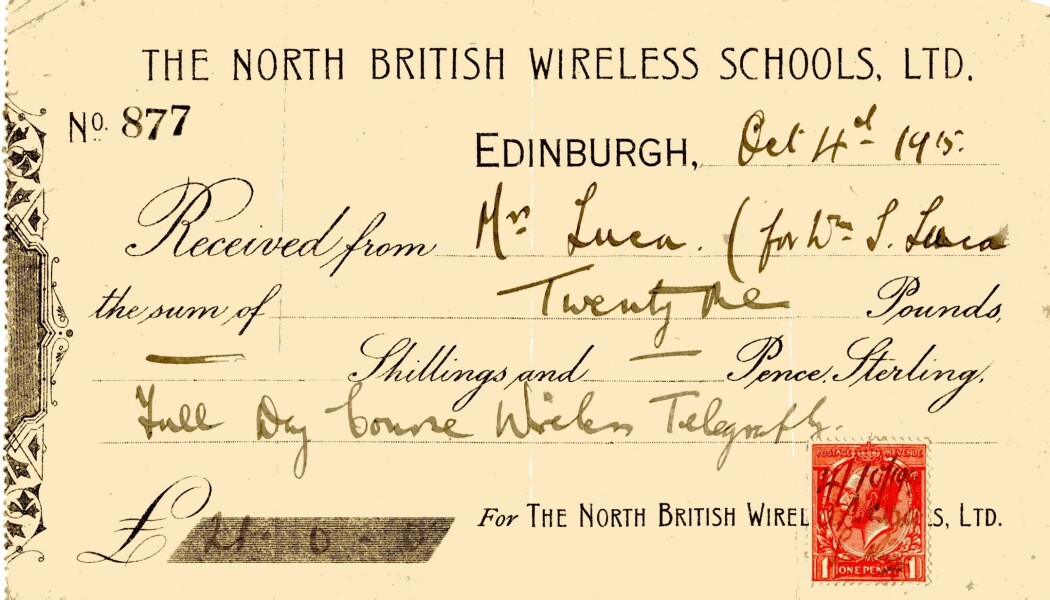 THE NORTH BRITISH WIRELESS SCHOOLS, LTD.
No. 877
EDINBURGH, Oct 4d 1915.
Received from Mrs Luca. (for Wm S. Luca
the sum of Twenty one Pounds,
— Shillings and — Pence Sterling,
Full Day Course Wireless Telegraphy.
£ 21 - 0 - 0
For THE NORTH BRITISH WIREL S, LTD.
POSTAGE REVENUE
1 ONE PENNY 1